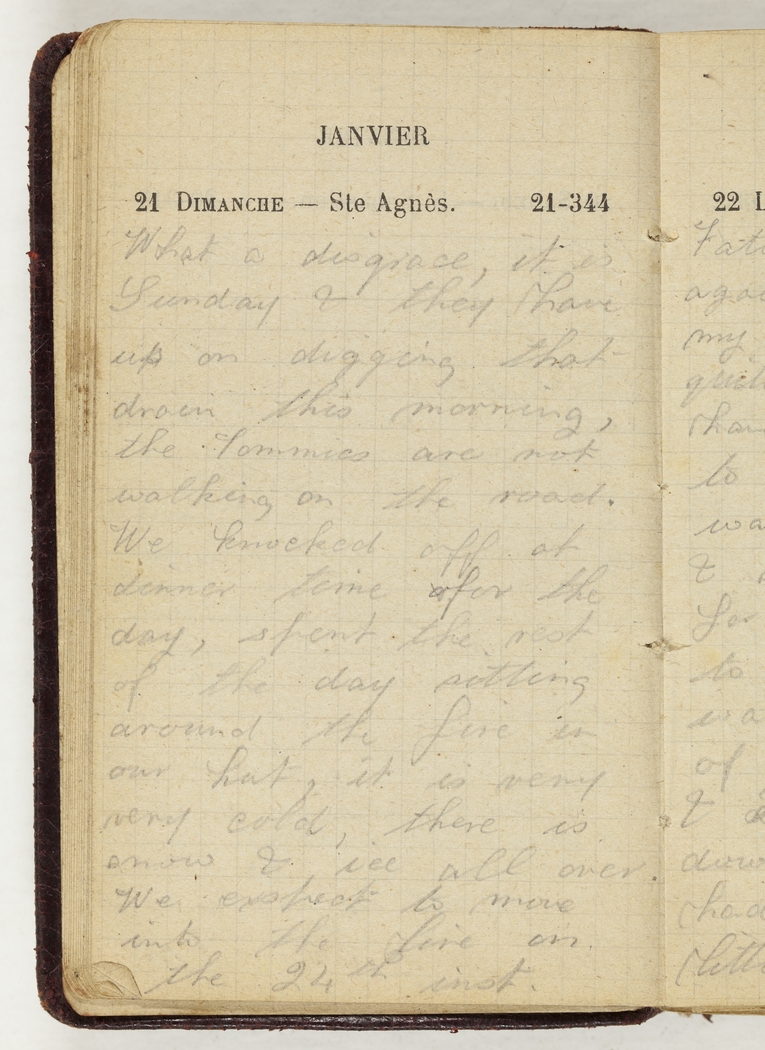 JANVIER
21 DIMANCHE — Ste Agnès. 21-344
What a disgrace, it is
Sunday & they have
us on digging that
drain this morning,
the Tommies are not
walking on the road.
We knocked off at
dinner time for the
day, spent the rest
of the day sitting
around the fire in
our hut, it is very
very cold, there is
snow & ice all over.
We expect to move
into the line on
the 24th inst.
22 L
Fati
agai
my
quit
to
wa
&
to
of
&
had